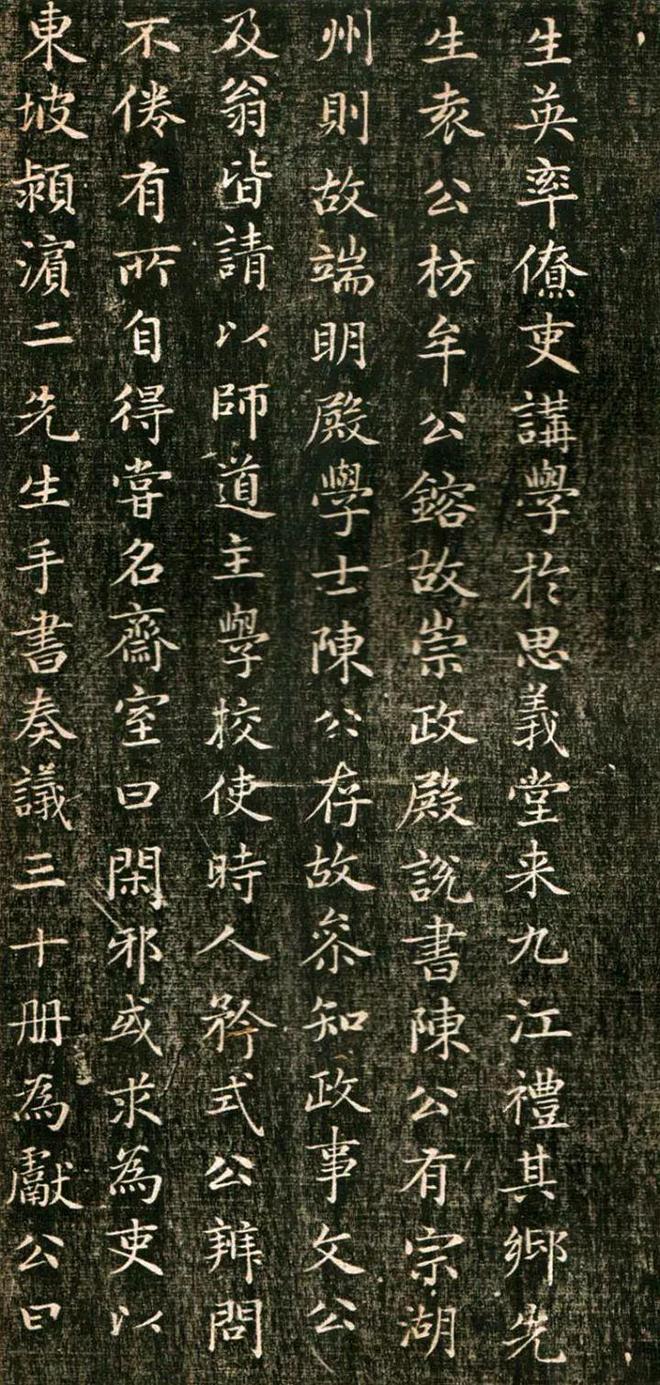 生英率僚吏講學於思義堂来九江禮其鄉先
生袁公枋牟公鎔故崇政殿說書陳公有宗湖
州則故端明殿學士陳公存故叅知政事文公
及翁皆請以師道主學校使時人矜式公辨問
不倦有所自得嘗名齋室曰閑邪或求為吏以
東坡潁濱二先生手書奏議三十册為獻公曰